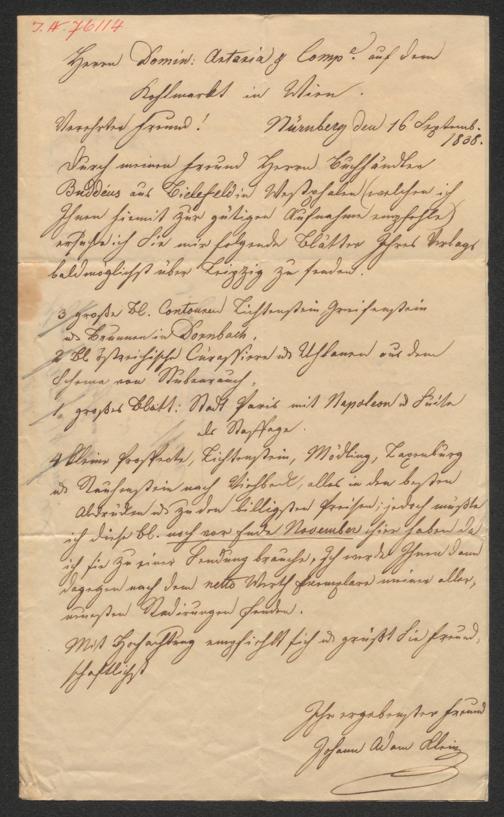 I.N. 76114
Herrn Domin: Artaria & Comp. auf dem
Kohlmarkt in Wien.
Verehrter Freund! Nürnberg den 16 Septemb.
1838.
Durch meinen Freund Herrn Buchhändler
Buddeus aus Bielefeld in Westphalen (welchen ich
Ihnen hiermit zur gütigen Aufnahme empfehle)
ersuche ich Sie mir folgende Blätter Ihres Verlags
baldmöglichst über Leipzig zu senden.
3 große Bl. Contouren Lichtenstein Greifenstein
u Brunnen in Dornbach,
2 Bl östreichische Cürassiere u Uhlanen aus dem
Schema von Stubenrauch,
1 großes Blatt: Stadt Paris mit Napoleon u Suite
als Staffage.
4 kleine Prospecte, Lichtenstein, Mödling, Laxenburg
u Rauhenstein nach Viehbeck, alles in den besten
Abdrücken u zu den billigsten Preisen; jedoch müßte
ich diese Bl. noch vor Ende November hier haben da
ich sie zu einer Sendung brauche, ich werde Ihnen dann
dagegen nach dem netto Werth Exemplare meiner aller,
neuesten Radirungen senden.
Mit Hochachtung empfiehlt sich u grüßt Sie freund,
schaftlichst
Ihr ergebenster Freund
Johann Adam Klein